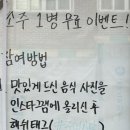 소주 1병 무료 이벤트!
참여방법
맛있게 드신 음식 사진을
인스타그램에 올리신 후
해쉬태그(